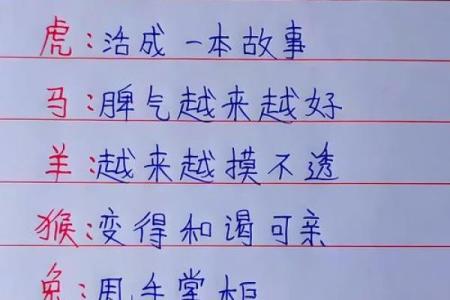 虎:活成一本故事
马:脾气越来越好
羊:越来越摸不透
猴:变得和谒可亲
兔:甩手掌柜